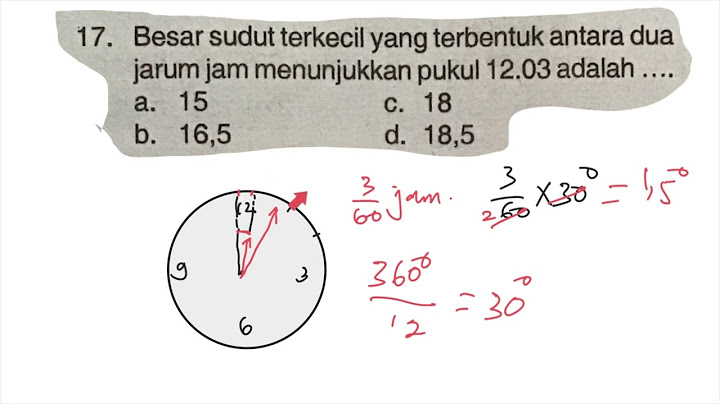 17. Besar sudut terkecil yang terbentuk antara dua
jarum jam menunjukkan pukul 12.03 adalah ....
a. 15 c. 18
b. 16,5 d. 18,5
3/60 jam. 3/60 × 30° = 1,5°
2
360°/12 = 30°
12
9 3
6